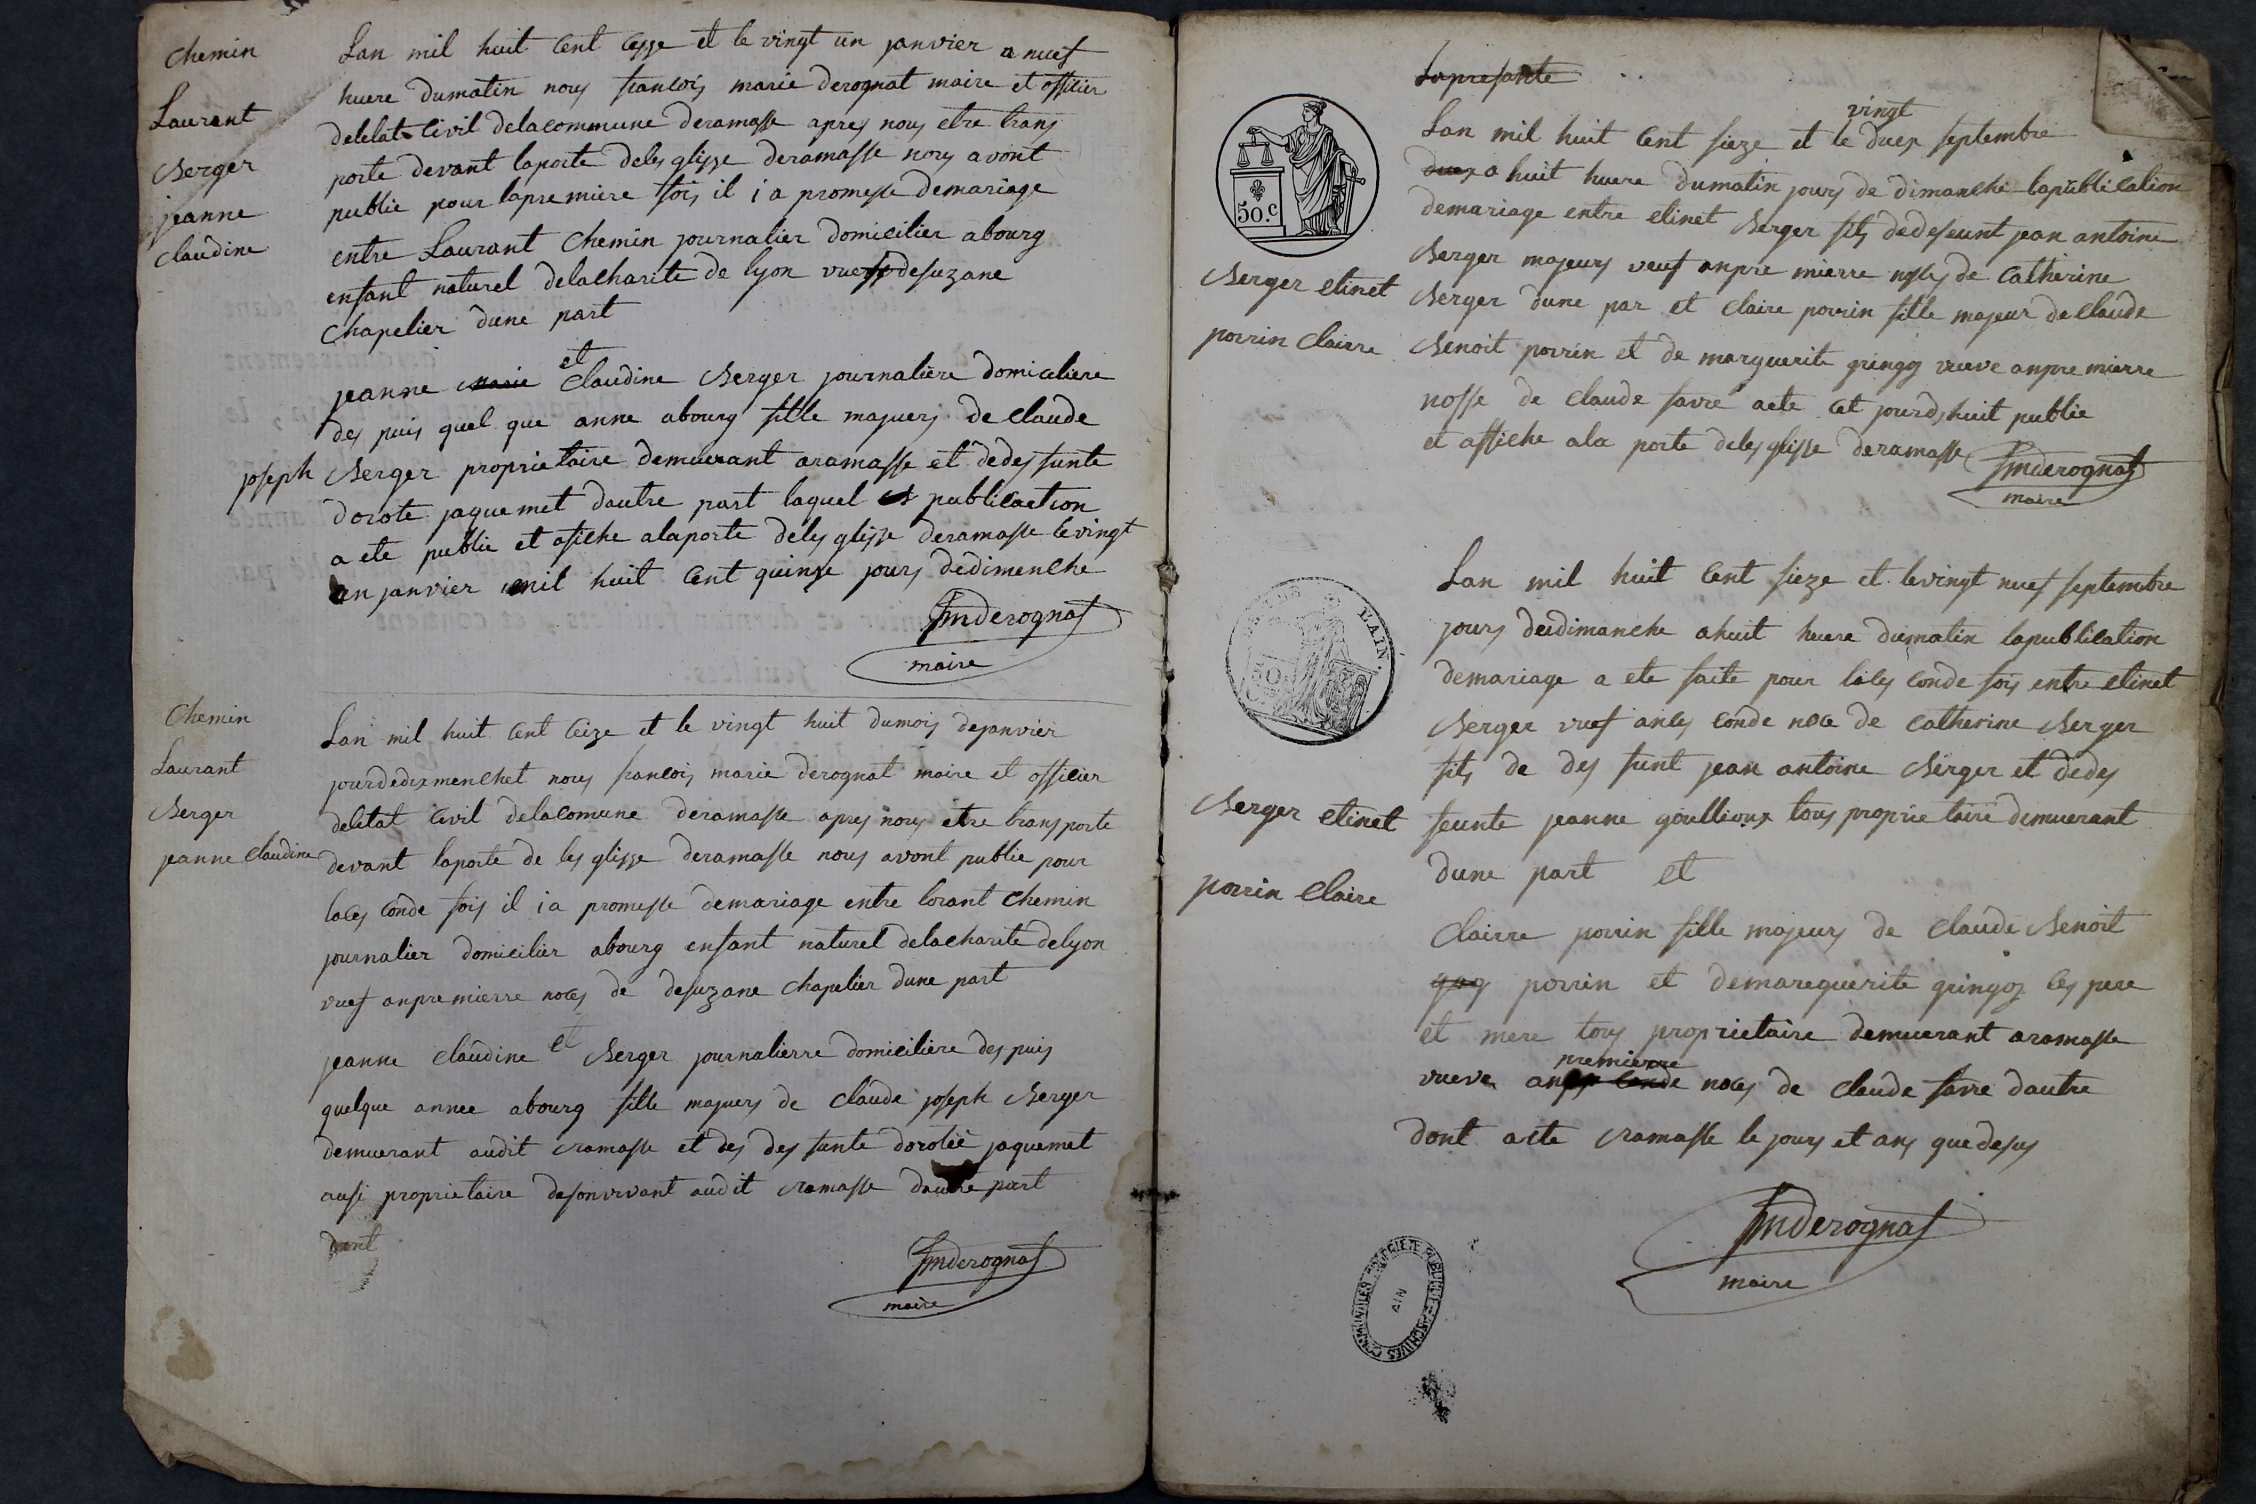 Chemin
Laurant
Berger
jeanne
claudine
Lan mil huit Cent cesse et le vingt un janvier a nuef
huere dumatin nous francois marie derognat maire et officier
deletat Civil delacommune deramasse apres nous etre trans
porte devant laporte deles glisse deramasse nous avont
publie pour lapremiere fois il i a promesse demariage
entre Laurant Chemin journalier domicilier abourg
enfant naturel delacharite de lyon vuef desuzane
Chapelier dune part
et
jeanne marie Claudine Berger journaliere domiciliere
des puis quel que anne abourg fille majuers de claude
joseph Berger proprietaire demuerant aramasse et dedes funte
dorote jaquemet dautre part laquel publicaction
a ete publie et afiche alaporte deles glisse deramasse levingt
un janvier mil huit Cent quinze jours dedimenche
fmderognat
maire
Chemin
Laurant
Berger
jeanne Claudine
Lan mil huit Cent Ceize et le vingt huit dumois dejanvier
jourdedixmenchet nous francois marie derognat maire et officier
deletat Civil delacomune deramasse apres nous etre transporte
devant laporte de les glisse deramasse nous avont publie pour
laces conde fois il i a promesse demariage entre lorant Chemin
journalier domicilier abourg enfant naturel delacharite delyon
vuef anpremierre noces de desuzane chapelier dune part
et
jeanne claudine Berger journalierre domiciliere des puis
quelque annee abourg fille majuers de claude joseph Berger
demuerant audit ramasse et des des funte dorotee jaquemet
ausi proprietaire desonvivant audit ramasse dautre part
dont
fmderognat
maire
Lapresante
50.c
Berger etinet
porrin Clairre
vingt
Lan mil huit Cent sieze et le duex septembre
duex a huit huere dumatin jours de dimanche lapublication
demariage entre etinet Berger fils dedefeunt jean antoine
Berger majeurs veuf anpre mierre noces de Catherine
Berger dune par et claire porrin fille majeur de Claude
Benoit porrin et de marguerite gringoz vueve anpre mierre
nosse de claude favre acte Cet jourdshuit publie
et affiche ala porte deles glisse deramasse
fmderognat
maire
L'AIN.
50
Berger etinet
porrin Claire
Lan mil huit Cent sieze et levingt nuef septembre
jours dedimanche ahuit huere dumatin lapublication
demariage a ete faite pour laces conde fois entre etinet
Berger vuef ances conde noce de catherine Berger
fils de des funt jean antoine Berger et dedes
feunte jeanne goullioux tous proprietaire demuerant
dune part et
Clairre porrin fille majeurs de Claude Benoit
porrin et demareguerite gringoz ces pere
et mere tous proprietaire demuerant aramasse
premierre
vueve an conde noces de claude favre dautre
dont acte ramasse le jours et ans que desus
fmderognat
maire
ARCHIVES COMMUNALES PROPRIETE PUBLIQUE
AIN